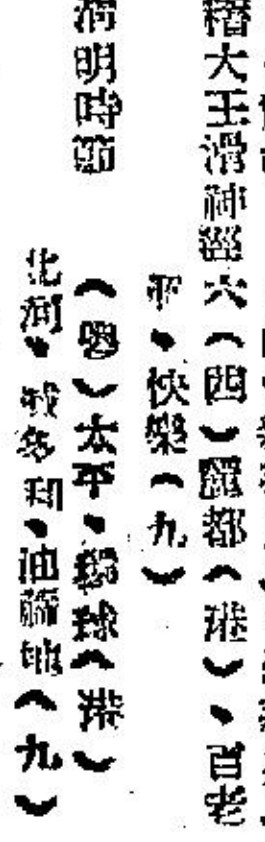 稽大王滑神經六（四）麗都（港）、百老
、快樂（九）
清明時節　（粵）太平、環球（港）
北河、域多利、油麻地（九）